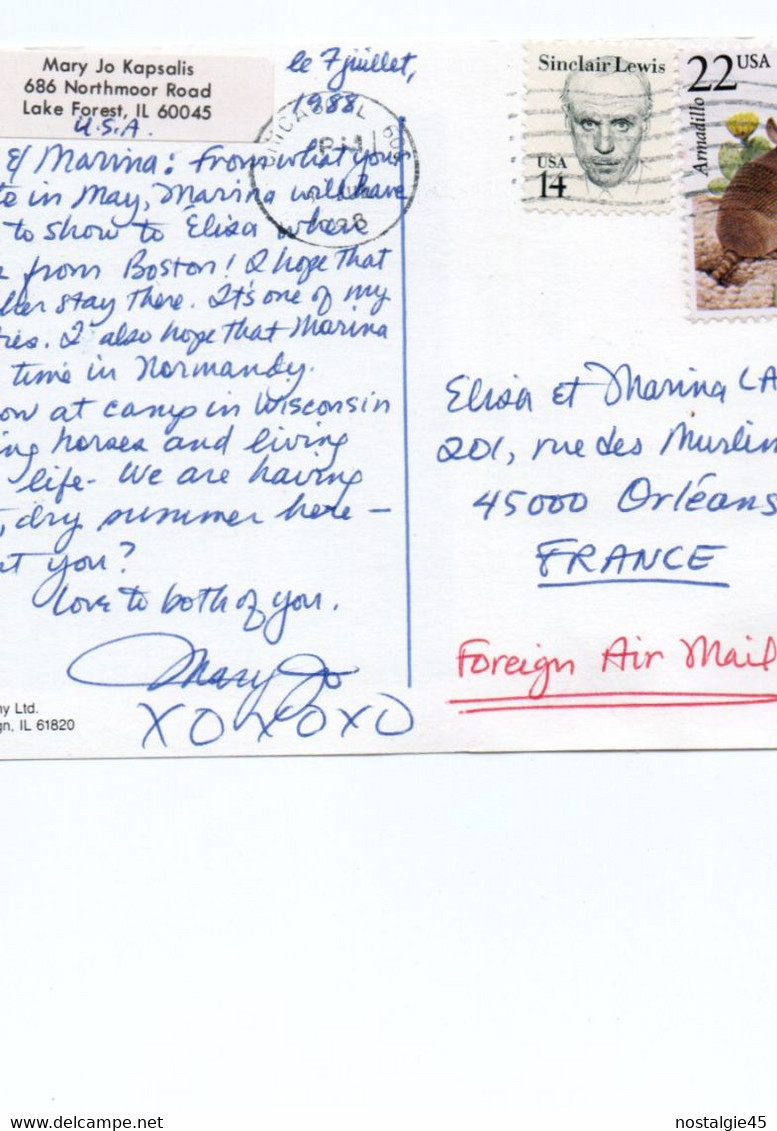 Mary Jo Kapsalis
686 Northmoor Road
Lake Forest, IL 60045
U.S.A.
le 7 juillet,
1988
& Marina: From what your
te in May, Marina will have
to show to Elisa where
from Boston! I hope that
her stay there. It's one of my
ies. I also hope that Marina
time in Normandy.
ow at camp in Wisconsin
ing horses and living
life. We are having
, dry summer here –
t you?
Love to both of you.
Mary Jo
XOXOXO
ny Ltd.
gn, IL 61820
CHICAGO, IL 606
PM
1988
Sinclair Lewis
USA
14
22 USA
Armadillo
Elisa et Marina LA
201, rue des Murlin
45000 Orléans
FRANCE
Foreign Air Mail
delcampe.net
nostalgie45